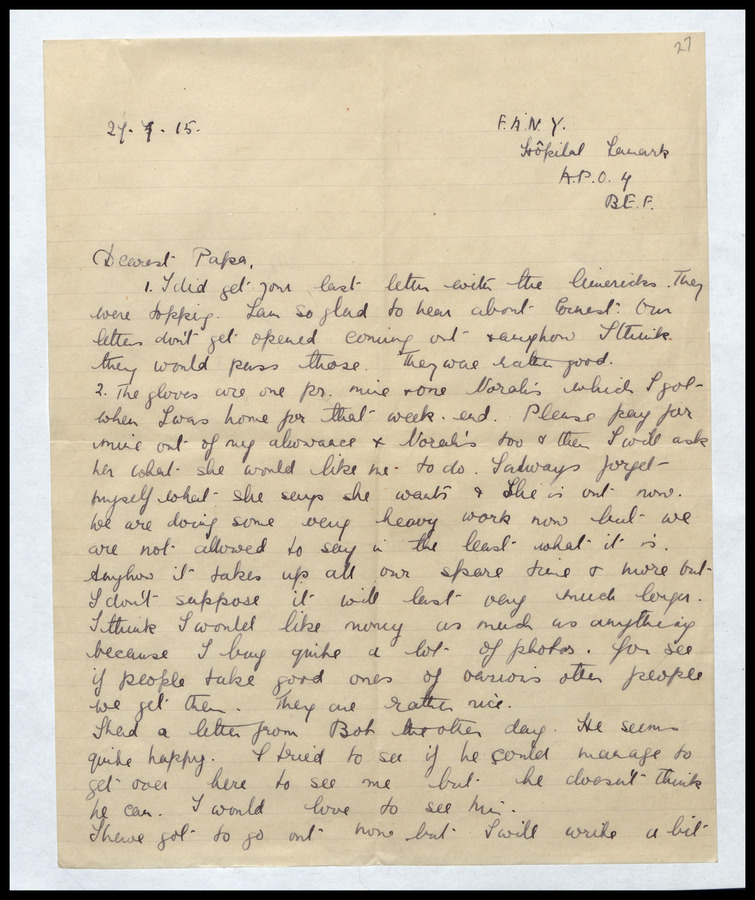 27
27. 7. 15.
F.A.N.Y.
Hôpital Lamark
A.P.O. 4
B.E.F.
Dearest Papa,
1. I did get your last letter with the limericks. They
were toppig. I am so glad to hear about Ernest. Our
letters don't get opened coming out & anyhow I think
they would pass those. They were rather good.
2. The gloves are one pr. mine & one Norah's which I got
when I was home for that week-end. Please pay for
mine out of my alowance & Norah's too & then I will ask
her what she would like me to do. I always forget
myself what she says she wants & She is out now.
We are doing some very heavy work now but we
are not allowed to say in the least what it is.
Anyhow it takes up all our spare time & more but
I don't suppose it will last very much longer.
I think I would like money as much as anything
because I buy quite a lot of photos. You see
if people take good ones of various other people
we get them. They are rather nice.
I had a letter from Bob the other day. He seems
quite happy. I tried to see if he could manage to
get over here to see me but he doesn't think
he can. I would love to see him.
I have got to go out now but I will write a bit